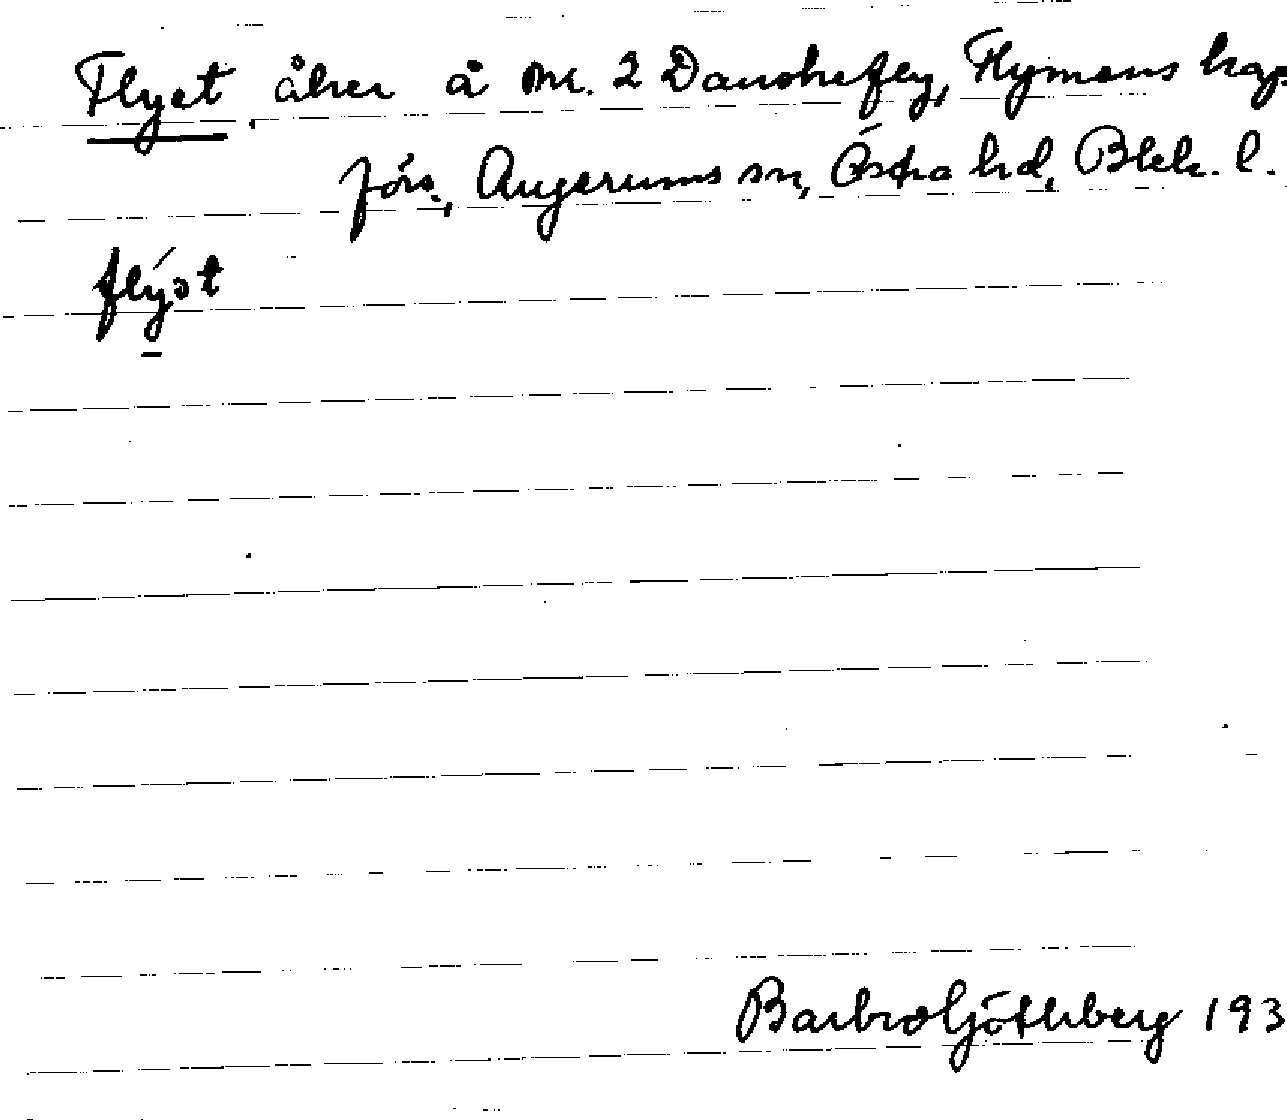 Flyet, åker å nr. 2 Danskefly, Flymens kap
förs., Augerums sn, Östra hd, Blek. l.
flýət
Barbro Götherberg 193